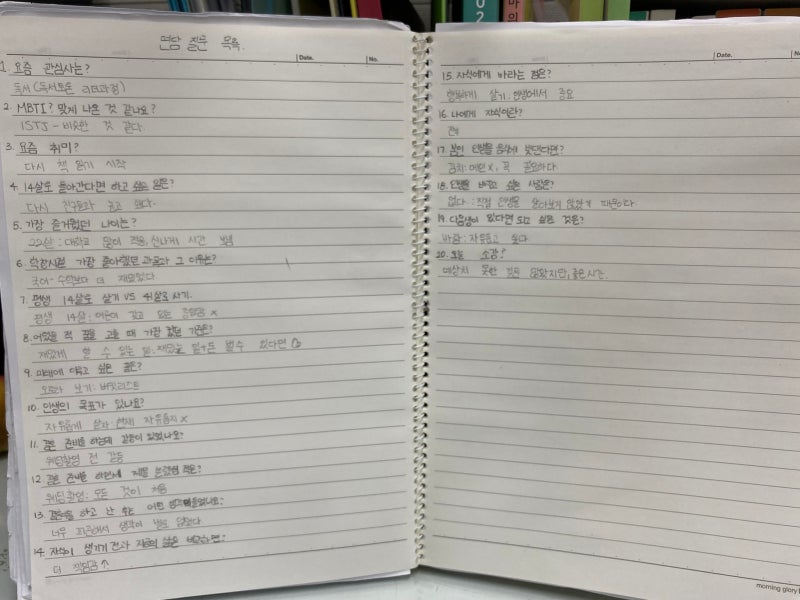 면담 질문 목록
Date.
No.
1. 요즘 관심사는?
독서(독서토론 리더과정)
2. MBTI? 맞게 나온 것 같나요?
ISTJ - 비슷한 것 같다.
3. 요즘 취미?
다시 책 읽기 시작
4. 14살로 돌아간다면 하고 싶은 일은?
다시 친구들과 놀고 싶다.
5. 가장 즐거웠던 나이는?
22살 : 대학교 적응, 신나게 시간 보냄
6. 학창시절 가장 좋아했던 과목과 그 이유는?
국어 - 수학보다 더 재밌었다.
7. 평생 14살로 살기 VS 41살로 살기.
평생 14살 : 어른이 갖고 있는 x
8. 어렸을 적 꿈을 고를 때 가장 컸던 기준은?
재밌게 할 수 있는 일 : 재밌는 일 + 돈 벌 수 있다면
9. 미래에 이루고 싶은 꿈은?
오로라 보기 : 버킷리스트
10. 인생의 목표가 있나요?
자유롭게 살자 : 현재 자유롭지 x
11. 결혼 준비를 하는데 갈등이 있었나요?
웨딩촬영 전 갈등
12. 결혼 준비를 하면서 제일 적은?
웨딩촬영 : 모든 것이 처음
13. 결혼식을 하고 난 후는 어떤
너무 피곤해서 생각이 별로 없었다
14. 자식이 생기기 전과 지금의 삶을 비교하면?
더 책임감↑
Date.
No.
15. 자식에게 바라는 점은?
행복하게 살기 : 인생에서 중요
16. 나에게 자식이란?
17. 본인 인생을 음식에 빗댄다면?
김치 : 메인 x, 꼭 필요하다.
18. 인생을 바꾸고 싶은 사람은?
없다 : 직접 인생을 살아보지 않았기 때문이다.
19. 다음생이 있다면 되고 싶은 것은?
바람 : 자유롭고 싶다
20. 오늘 소감?
예상치 못한 않았지만, 좋은 시간.
morning glory